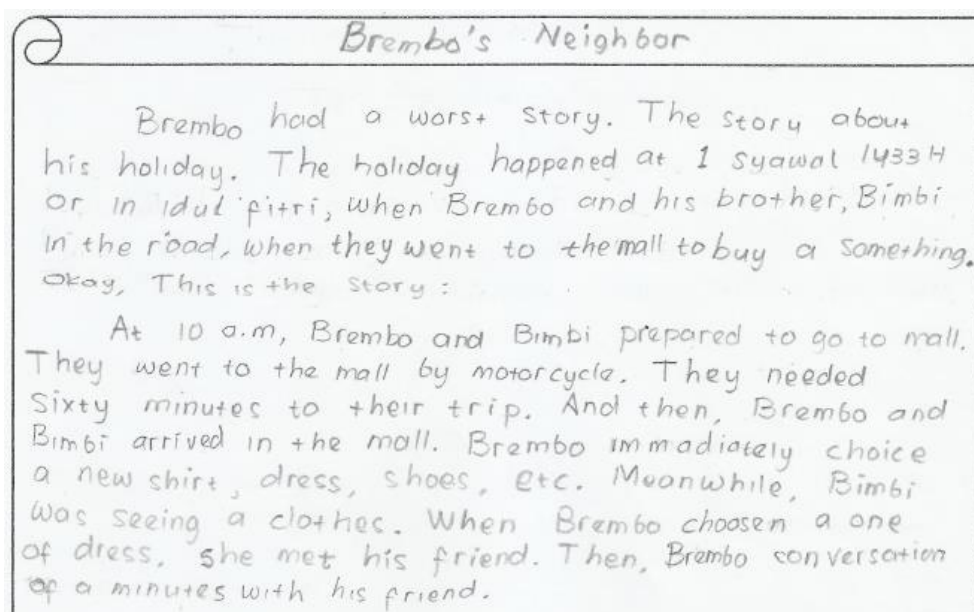 Brembo's Neighbor
Brembo had a worst story. The story about
his holiday. The holiday happened at 1 Syawal 1433 H
or in idul fitri, when Brembo and his brother, Bimbi
in the road, when they went to the mall to buy a something.
Okay, This is the story :
At 10 a.m, Brembo and Bimbi prepared to go to mall.
They went to the mall by motorcycle. They needed
Sixty minutes to their trip. And then, Brembo and
Bimbi arrived in the mall. Brembo immadiately choice
a new shirt, dress, shoes, etc. Meanwhile, Bimbi
was seeing a clothes. When Brembo choosen a one
of dress, she met his friend. Then, Brembo conversation
of a minutes with his friend.